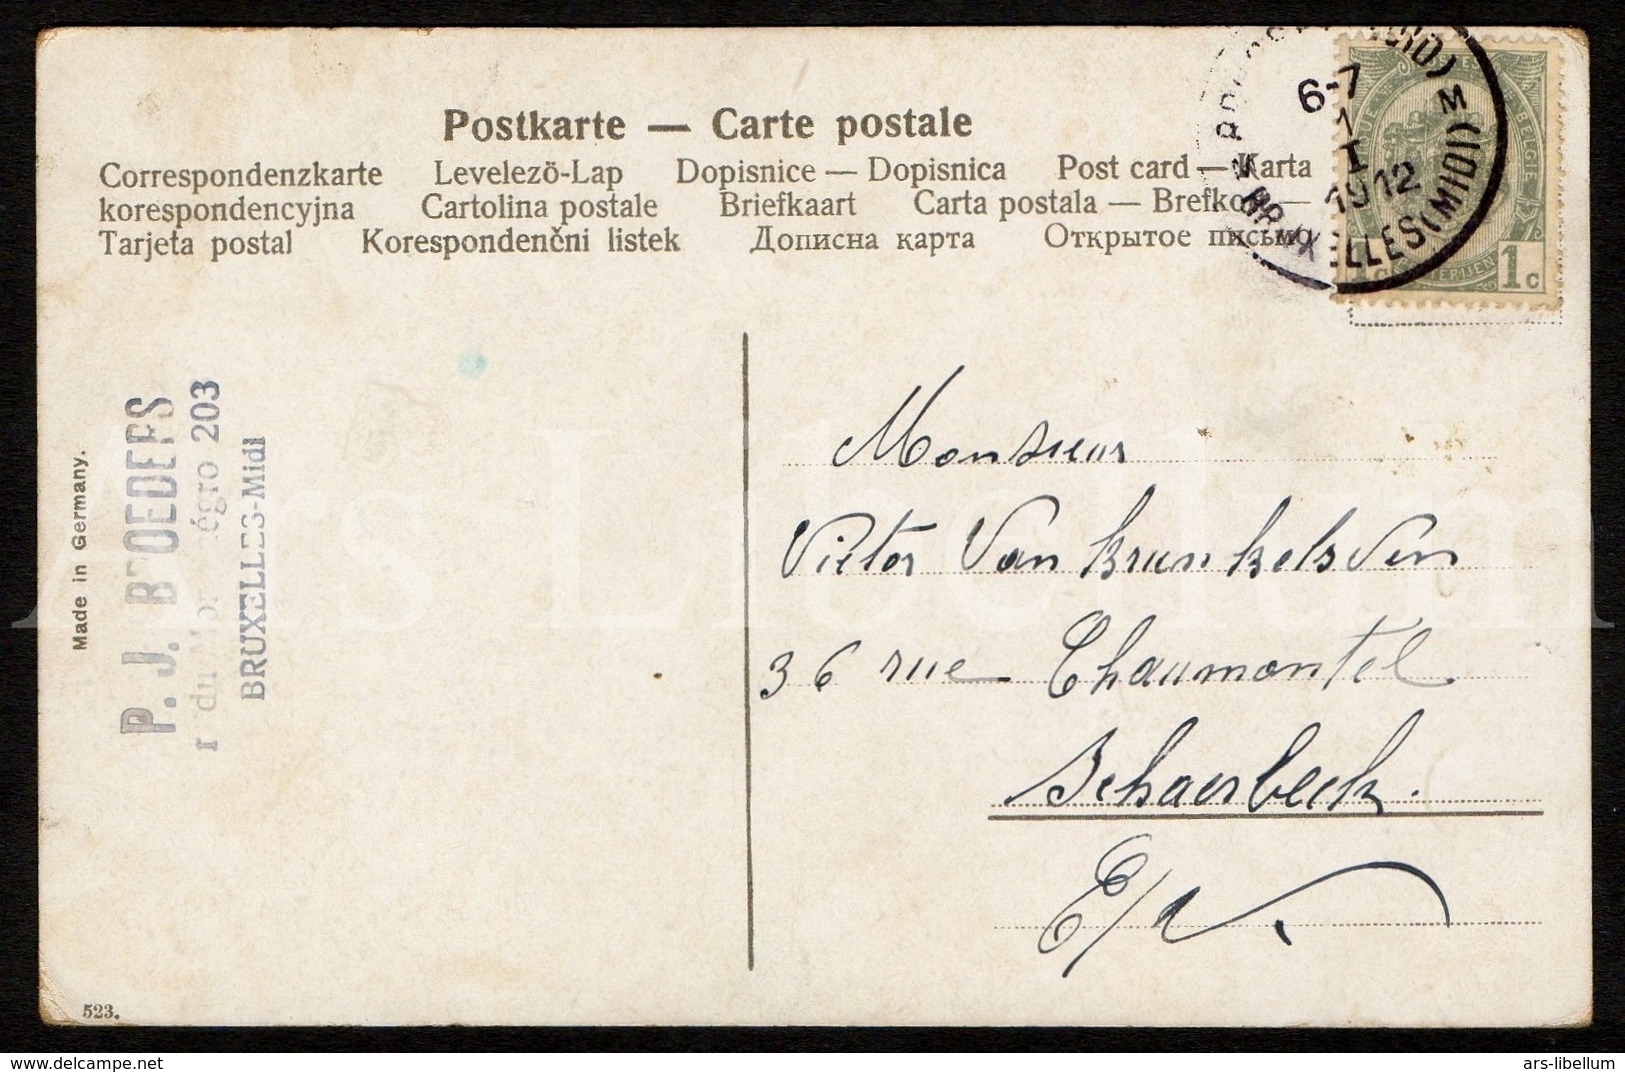 Postkarte — Carte postale
Correspondenzkarte Levelező-Lap Dopisnice — Dopisnica Post card — Karta
korespondencyjna Cartolina postale Briefkaart Carta postala — Brefkort —
Tarjeta postal Korespondenčni listek Дописна карта Открытое письмо
6-7
1
I
1912
BRUXELLES (MIDI) M
1c
Made in Germany.
P. J. B OEDERS
r du Mon égro 203
BRUXELLES-Midi
Monsieur
Victor Van Krunkelsven
36 rue Chaumontel
Schaerbeek.
E/V.
523.
Ars Libellum
delcampe.net
ars-libellum